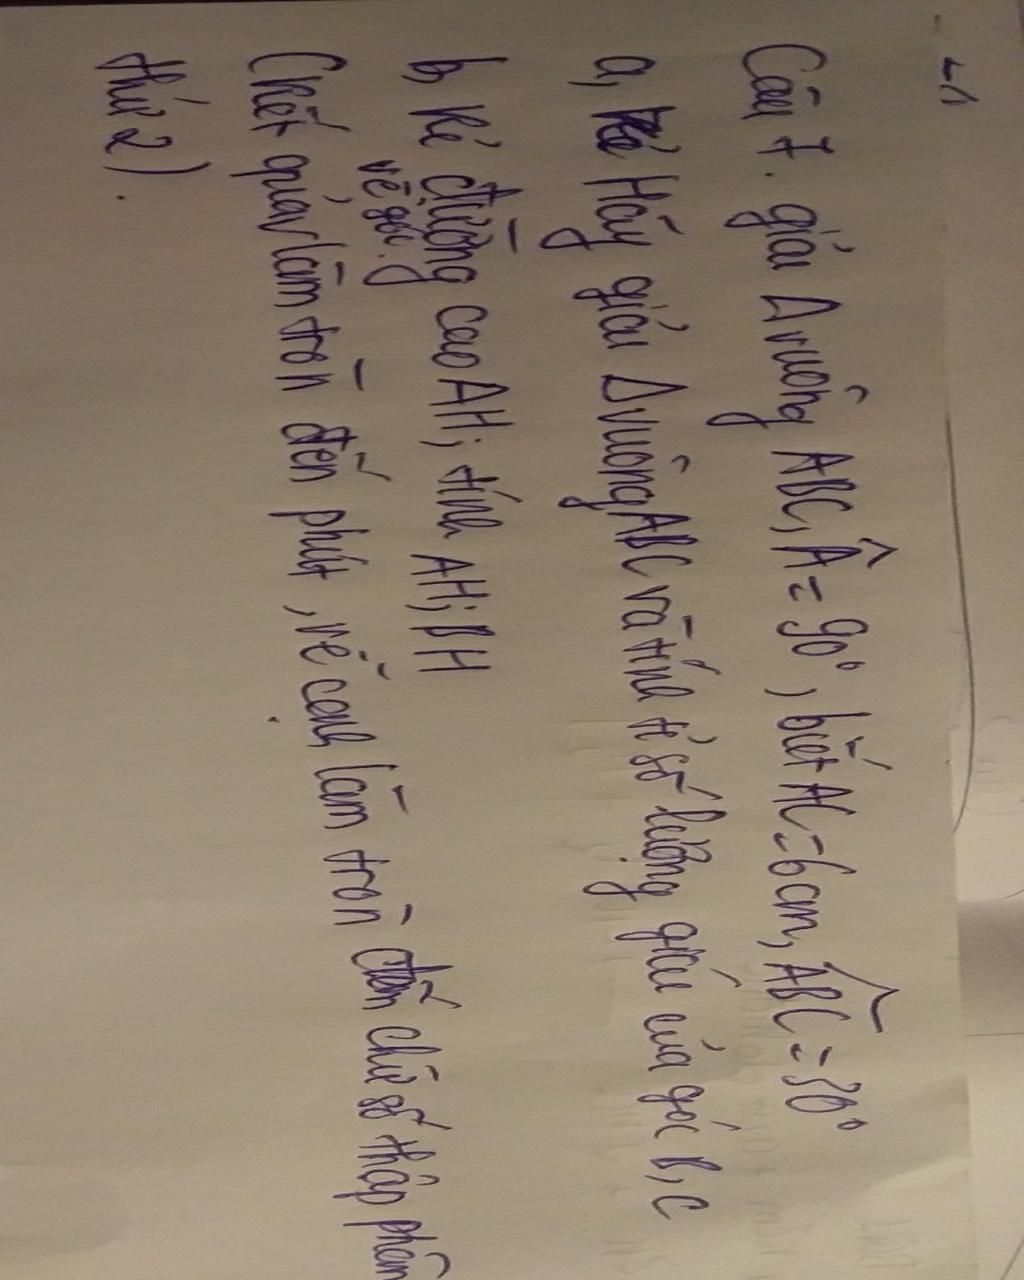 Câu 7. giải Δ vuông ABC, Â = 90°, biết AC = 6cm, ABC = 30°
a, Hãy giải Δ vuông ABC và tính tỉ số lượng giác của góc B, C
b, Kẻ đường cao AH; tính AH; BH
về góc.
(kết quả làm tròn đến phút, về cạnh làm tròn đến chữ số thập phân
thứ 2).